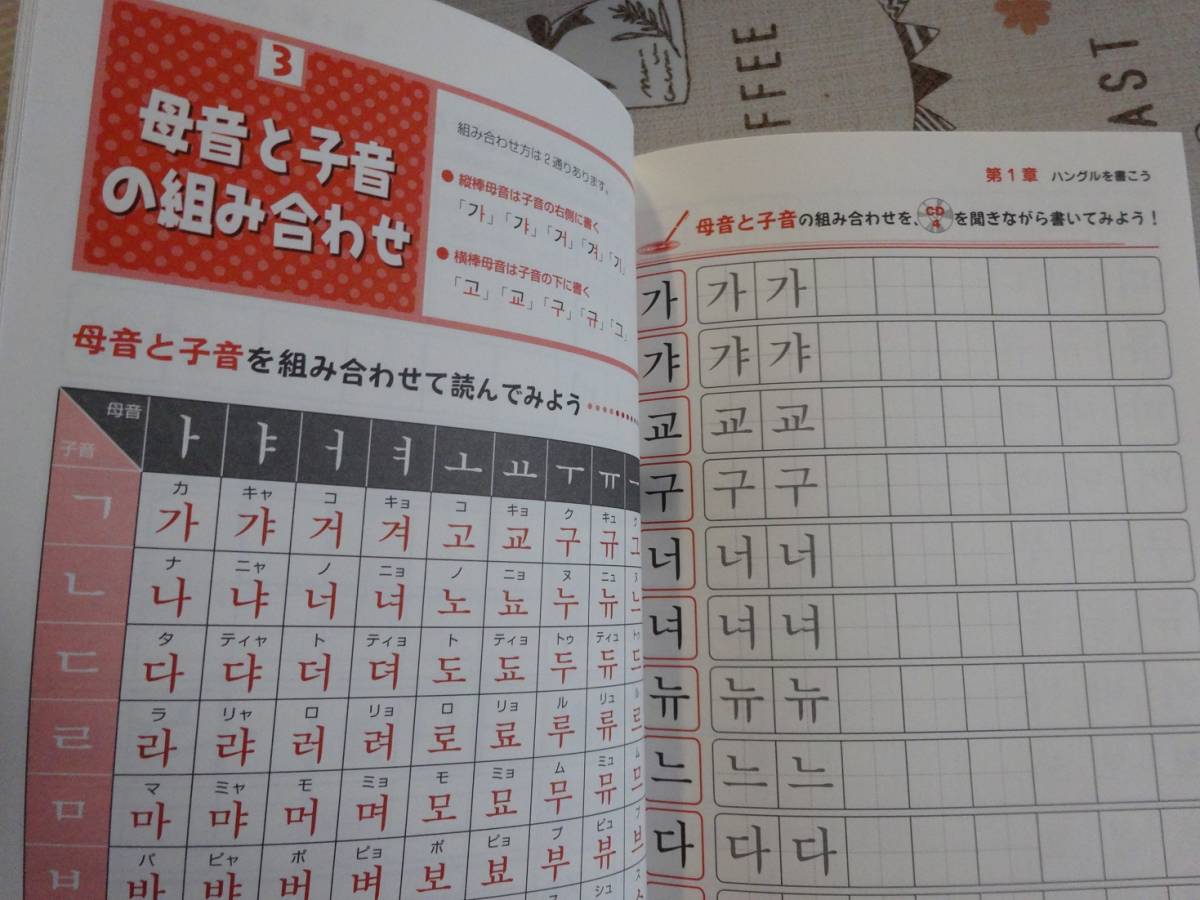 3
母音と子音
の組み合わせ
組み合わせ方は2通りあります。
● 縦棒母音は子音の右側に書く
「가」「갸」「거」「겨」「기」
● 横棒母音は子音の下に書く
「고」「교」「구」「규」「그」
母音と子音を組み合わせて読んでみよう
母音 ㅏ ㅑ ㅓ ㅕ ㅗ ㅛ ㅜ ㅠ ㅡ
子音
カ キャ コ キョ コ キョ ク キュ ク
ㄱ 가 갸 거 겨 고 교 구 규 그
ナ ニャ ノ ニョ ノ ニョ ヌ ニュ ヌ
ㄴ 나 냐 너 녀 노 뇨 누 뉴 느
タ ティャ ト ティョ ト ティョ トゥ ティュ トゥ
ㄷ 다 댜 더 뎌 도 됴 두 듀 드
ラ リャ ロ リョ ロ リョ ル リュ ル
ㄹ 라 랴 러 려 로 료 루 류 르
マ ミャ モ ミョ モ ミョ ム ミュ ム
ㅁ 마 먀 머 며 모 묘 무 뮤 므
パ ピャ ポ ピョ ポ ピョ プ ピュ プ
ㅂ 바 뱌 버 벼 보 뵤 부 뷰 브
シュ ス
第1章 ハングルを書こう
母音と子音の組み合わせを、CD 4 を聞きながら書いてみよう!
가 가 가
갸 갸 갸
교 교 교
구 구 구
너 너 너
녀 녀 녀
뉴 뉴 뉴
느 느 느
다 다 다
FFEE
AST